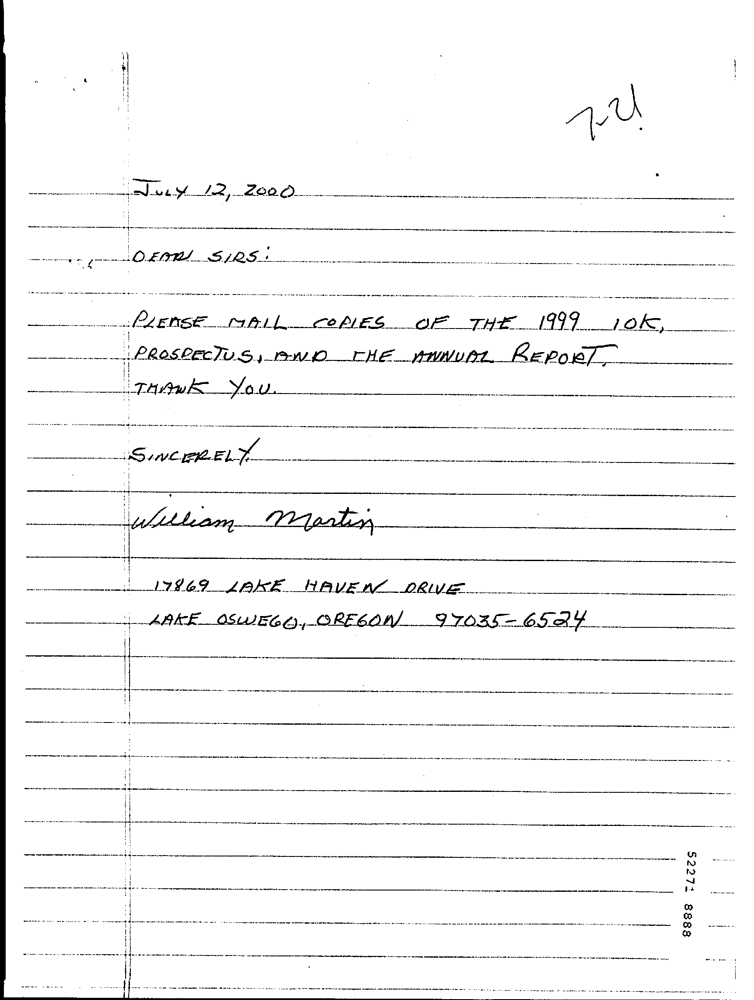 7-21
July 12, 2000
DEAR SIRS:
PLEASE MAIL COPIES OF THE 1999 10K,
PROSPECTUS, AND THE ANNUAL REPORT.
THANK YOU.
SINCERELY,
William Martin
17869 LAKE HAVEN DRIVE
LAKE OSWEGO, OREGON 97035-6524
52271 8888